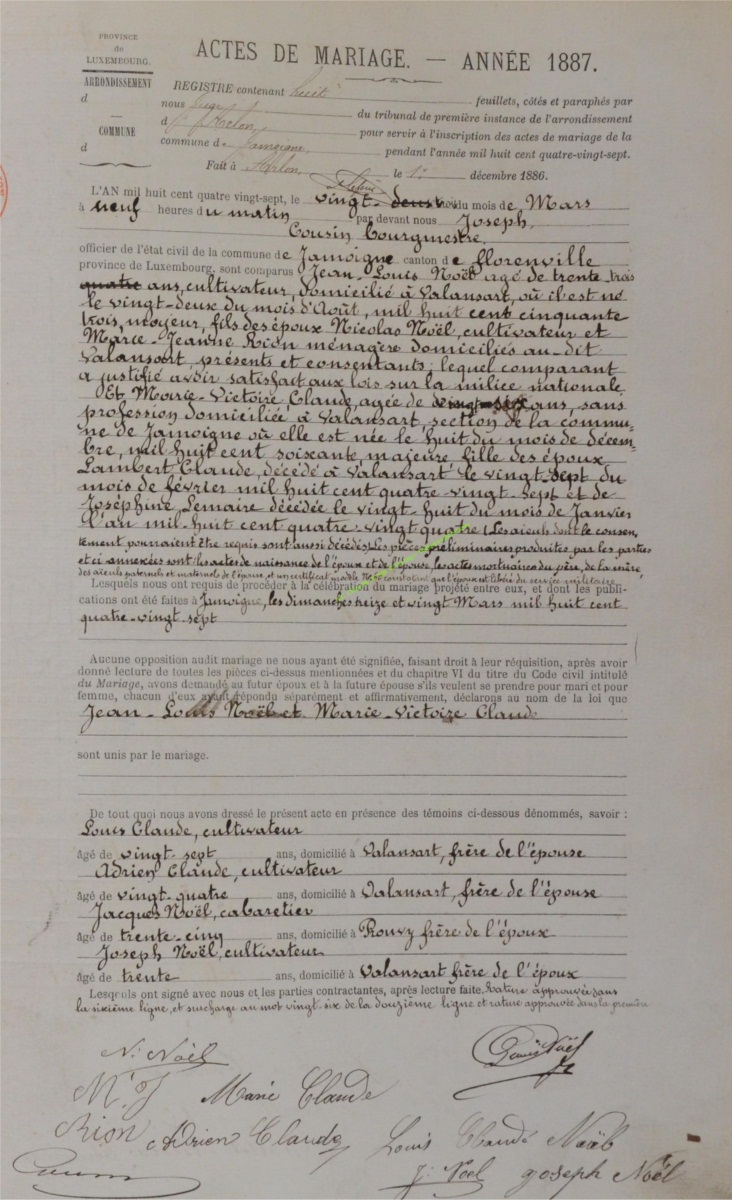 PROVINCE
de
LUXEMBOURG.
ARRONDISSEMENT
d
COMMUNE
d
ACTES DE MARIAGE. — ANNÉE 1887.
REGISTRE contenant huit feuillets, côtés et paraphés par
nous Juge du tribunal de première instance de l'arrondissement
d'Arlon pour servir à l'inscription des actes de mariage de la
commune de Jamoigne pendant l'année mil huit cent quatre-vingt-sept.
Fait à Arlon, le 1er décembre 1886.
L'AN mil huit cent quatre vingt-sept, le vingt-deux du mois de Mars
à neuf heures du matin par devant nous Joseph
Cousin bourgmestre,
officier de l'état civil de la commune de Jamoigne canton de florenville
province de Luxembourg, sont comparus Jean-Louis Noël agé de trente-trois
quatre ans, cultivateur, domicilié à Valansart, où il est né
le vingt-deux du mois d'Août, mil huit cent cinquante
trois, majeur, fils des époux Nicolas Noël, cultivateur et
Marie-Jeanne Rion ménagère domiciliés au-dit
Valansart, présents et consentants; lequel comparant
a justifié avoir satisfact aux lois sur la milice nationale.
Et Marie-Victoire Claude, agée de vingt-six ans, sans
profession domiciliée à Valansart, section de la commu-
ne de Jamoigne où elle est née le huit du mois de décem-
bre, mil huit cent soixante, majeure fille des époux
Lambert Claude, décédé à Valansart le vingt-sept du
mois de février mil huit cent quatre-vingt-sept et de
Joséphine Lemaire décédée le vingt-huit du mois de Janvier
l'an mil-huit cent quatre-vingt quatre (Les aïeuls dont le consen-
tement pourraient être requis sont aussi décédés) Les pièces préliminaires produites par les parties
et ci annexées sont les actes de naissance de l'époux et de l'épouse, les actes mortuaires du père, de la mère,
des aïeuls paternels et maternels de l'épouse, et un certificat modèle constatant que l'époux est libéré du service militaire
Lesquels nous ont requis de procéder à la célébration du mariage projeté entre eux, et dont les publi-
cations ont été faites à Jamoigne, les dimanches treize et vingt Mars mil huit cent
quatre-vingt-sept
Aucune opposition audit mariage ne nous ayant été signifiée, faisant droit à leur réquisition, après avoir
donné lecture de toutes les pièces ci-dessus mentionnées et du chapitre VI du titre du Code civil intitulé
du Mariage, avons demandé au futur époux et à la future épouse s'ils veulent se prendre pour mari et pour
femme, chacun d'eux ayant répondu séparément et affirmativement, déclarons au nom de la loi que
Jean-Louis Noël et Marie-Victoire Claude
sont unis par le mariage.
De tout quoi nous avons dressé le présent acte en présence des témoins ci-dessous dénommés, savoir :
Louis Claude, cultivateur
âgé de vingt-sept ans, domicilié à Valansart, frère de l'épouse
Adrien Claude, cultivateur
âgé de vingt-quatre ans, domicilié à Valansart, frère de l'épouse
Jacques Noël, cabaretier
âgé de trente-cinq ans, domicilié à Prouvy frère de l'époux
Joseph Noël, cultivateur
âgé de trente ans, domicilié à Valansart frère de l'époux
Lesquels ont signé avec nous et les parties contractantes, après lecture faite. Rature approuvée dans
la sixième ligne, et surcharge au mot vingt-six de la douzième ligne et rature approuvée dans la première
N. Noël
Louis Noël
M. J Marie Claude
Rion Adrien Claude Louis Claude
J. Noel Joseph Noël